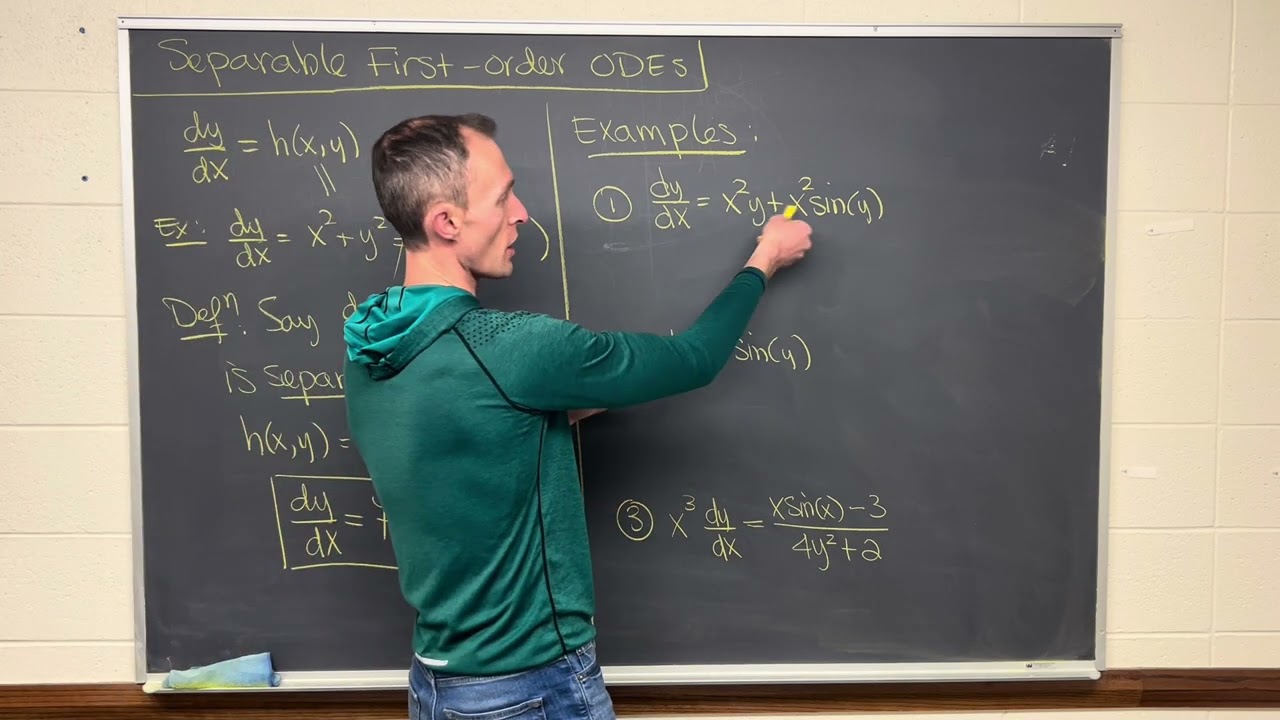 Separable First-order ODEs
dy/dx = h(x,y)
Ex: dy/dx = x² + y² = )
Defⁿ: Say
is separ
h(x,y) =
dy/dx =
Examples:
① dy/dx = x²y + x²sin(y)
sin(y)
③ x³ dy/dx = (xsin(x) - 3)/(4y² + 2)